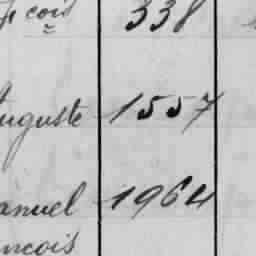 çois 338
Auguste 1557
anuel 1964
ncois